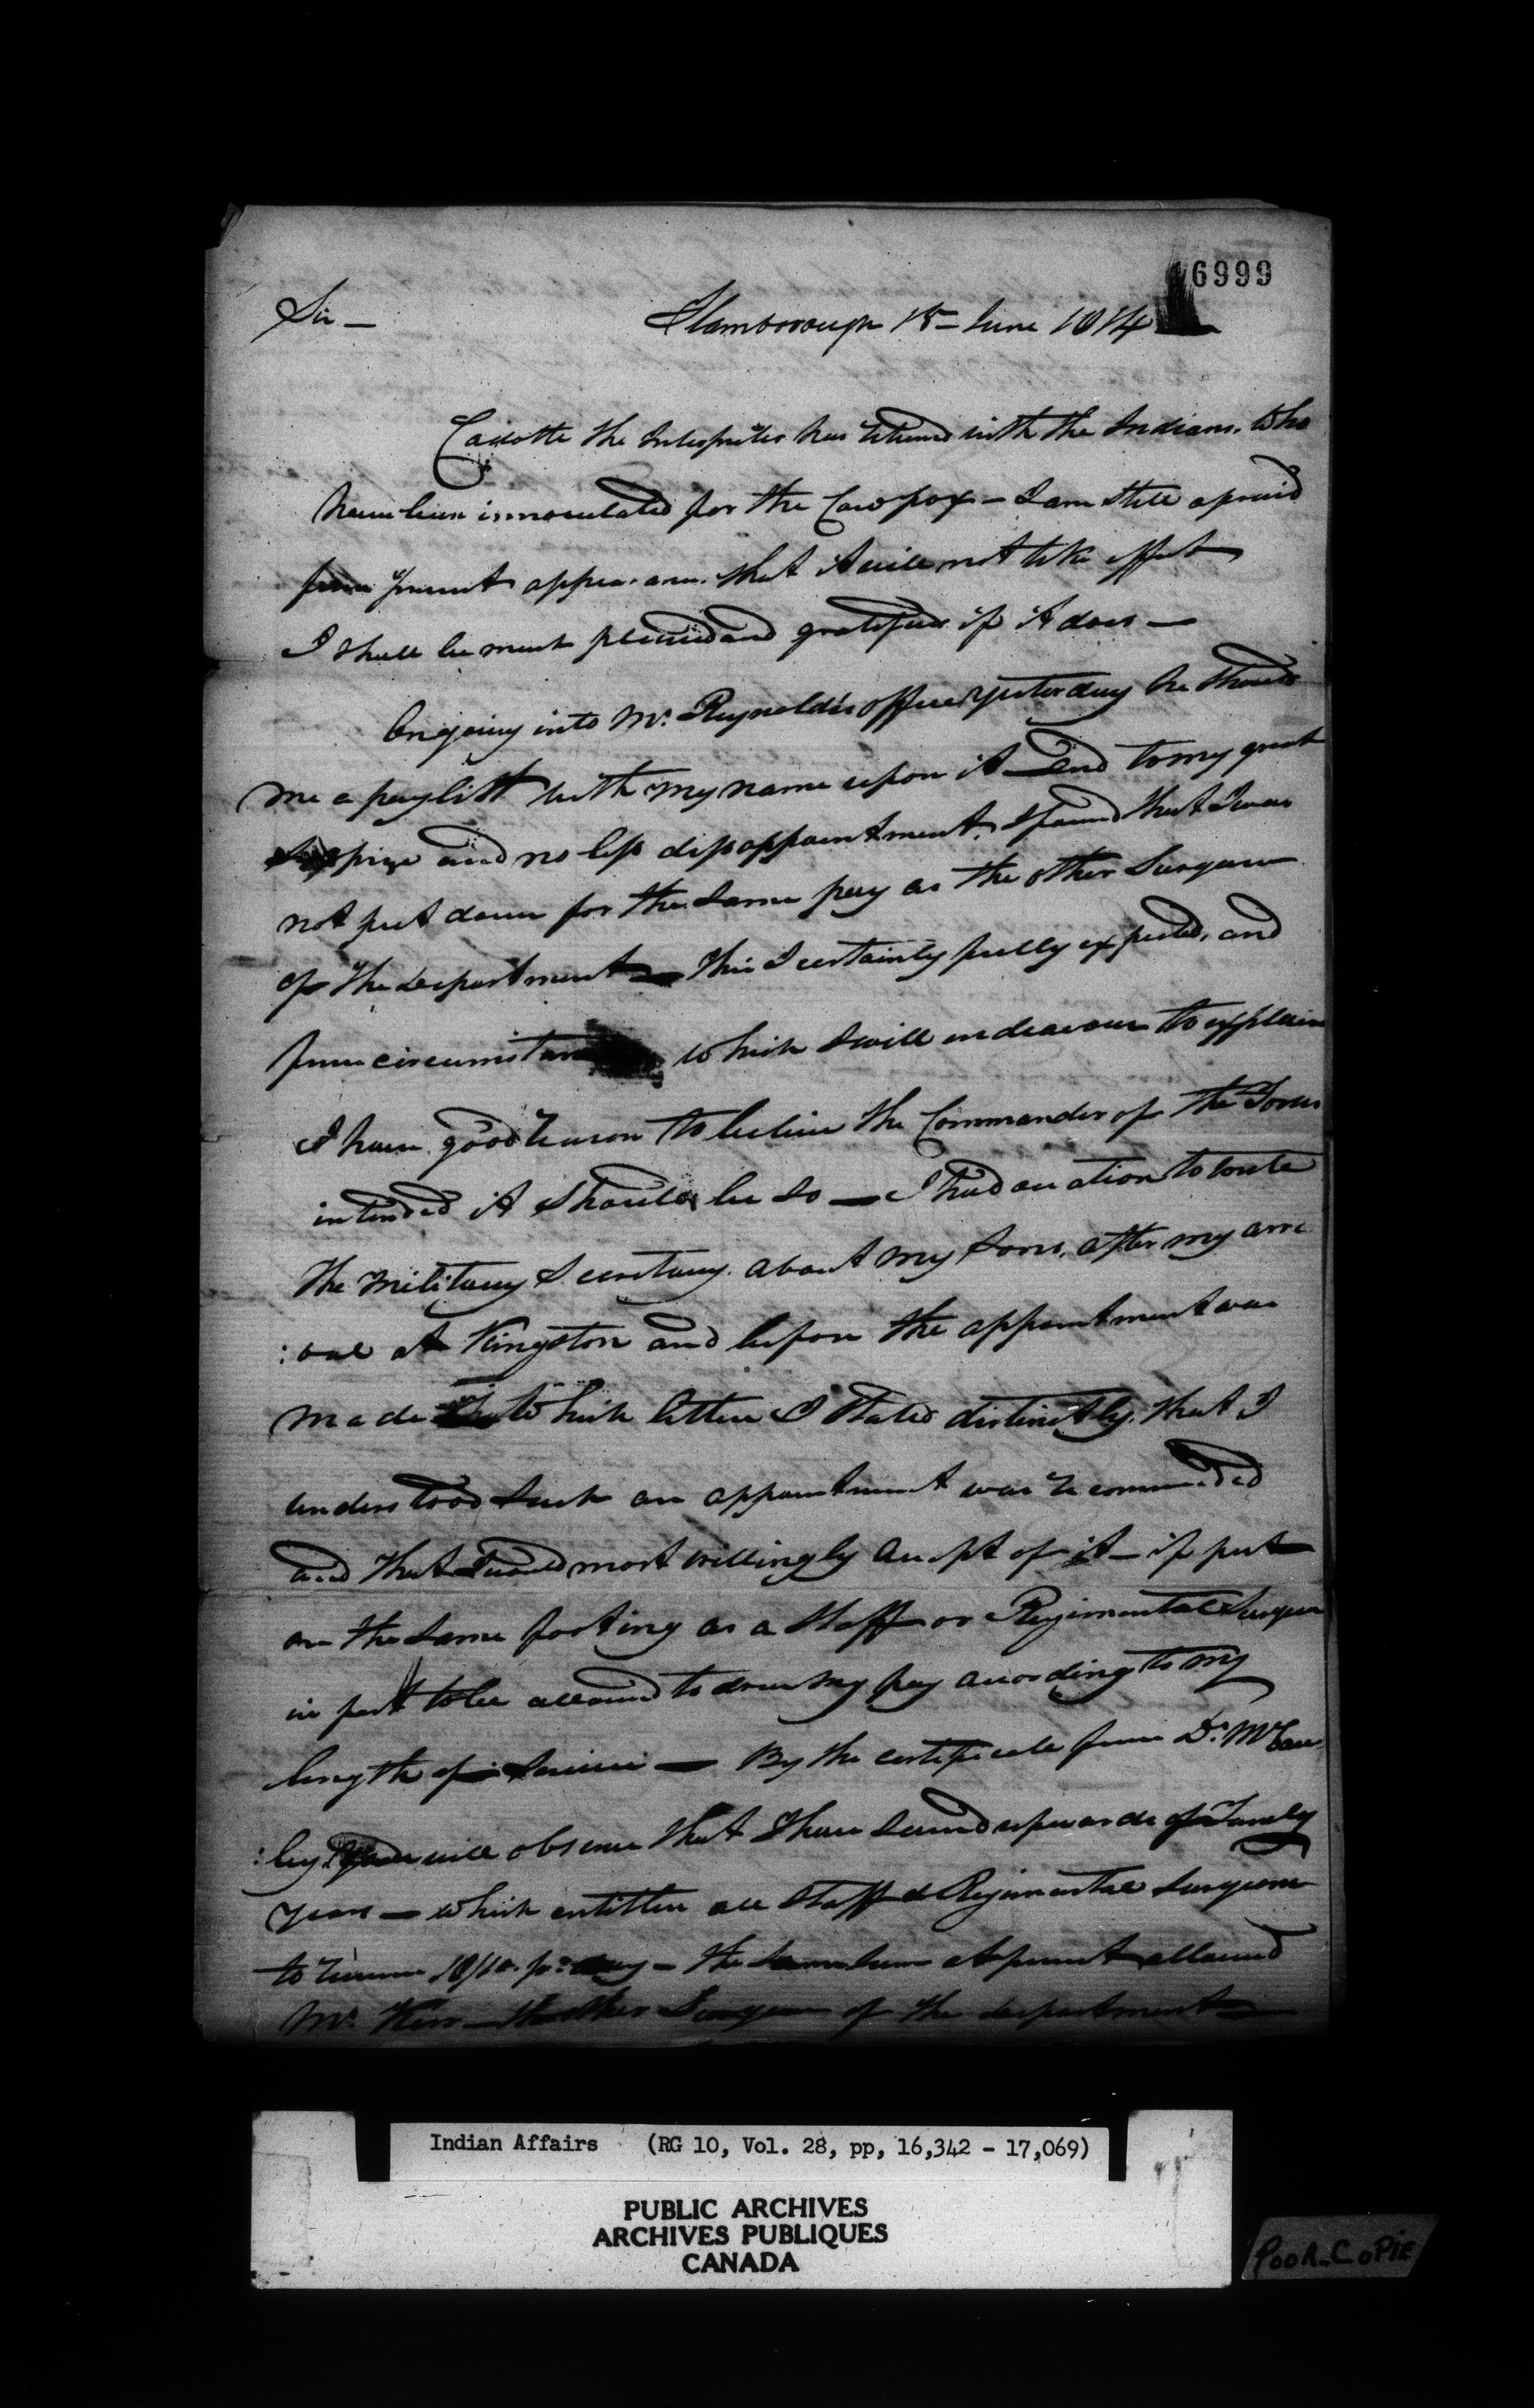 16999
Sir — Flamborough 15 - June 1814
Cadotte the Interpriter has returned with the Indians. who
have been innoculated for the Cow pox — I am still afraid
from present appearance. that it will not take effect
I shall be much pleased and gratified if it does —
On going into Mr. Reynolds's office yesterday he showed
me a pay list with my name upon it — and to my great
surprize and no less dissappointment. I found that I was
not put down for the same pay as the other Surgeon
of the department — this I certainly fully expected, and
from circumstan which I will endeavour to explain
I have good reason to believe the Commander of the Forces
intended it should be so — I had occation to write
the Military Secretary. about my sons, after my arri
: val at Kingston and before the appointment was
made in which letter I stated distinctly. that I
understood such an appointment was recommended
and that I would most willingly accept of it — if put
on the same footing as a Staff or Regimental Surgeon
in fact to be allowed to draw my pay according to my
length of service — By the certificate from Dr. McCau
: ley you will observe that I have served upwards of Twenty
years — which entitles all Staff & Regimental Surgeons
to receive pr. day — the same sum at present allowed
Mr. Kerr — the other Surgeon of the department —
Indian Affairs (RG 10, Vol. 28, pp, 16,342 - 17,069)
PUBLIC ARCHIVES
ARCHIVES PUBLIQUES
CANADA
POOR COPIE